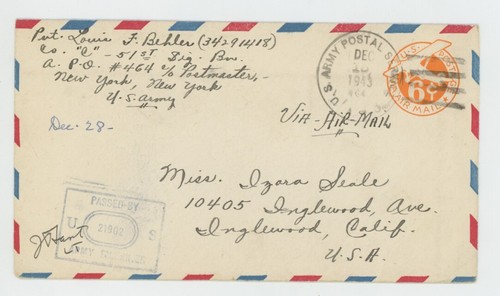 Pvt. Louis F. Behler (34291418)
Co. "C" - 51st Sig. Bn.
A. P.O. #464 c/o Postmaster,
New York, New York
U.S. Army
U.S. ARMY POSTAL S
DEC
1943
U.S. POSTAGE
6¢
AIR MAIL
Via-Air-Mail
Dec. 28-
Miss. Izora Seale
10405 Inglewood, Ave.
Inglewood, Calif.
U.S.A.
PASSED BY
U S
21902
ARMY EXAMINER